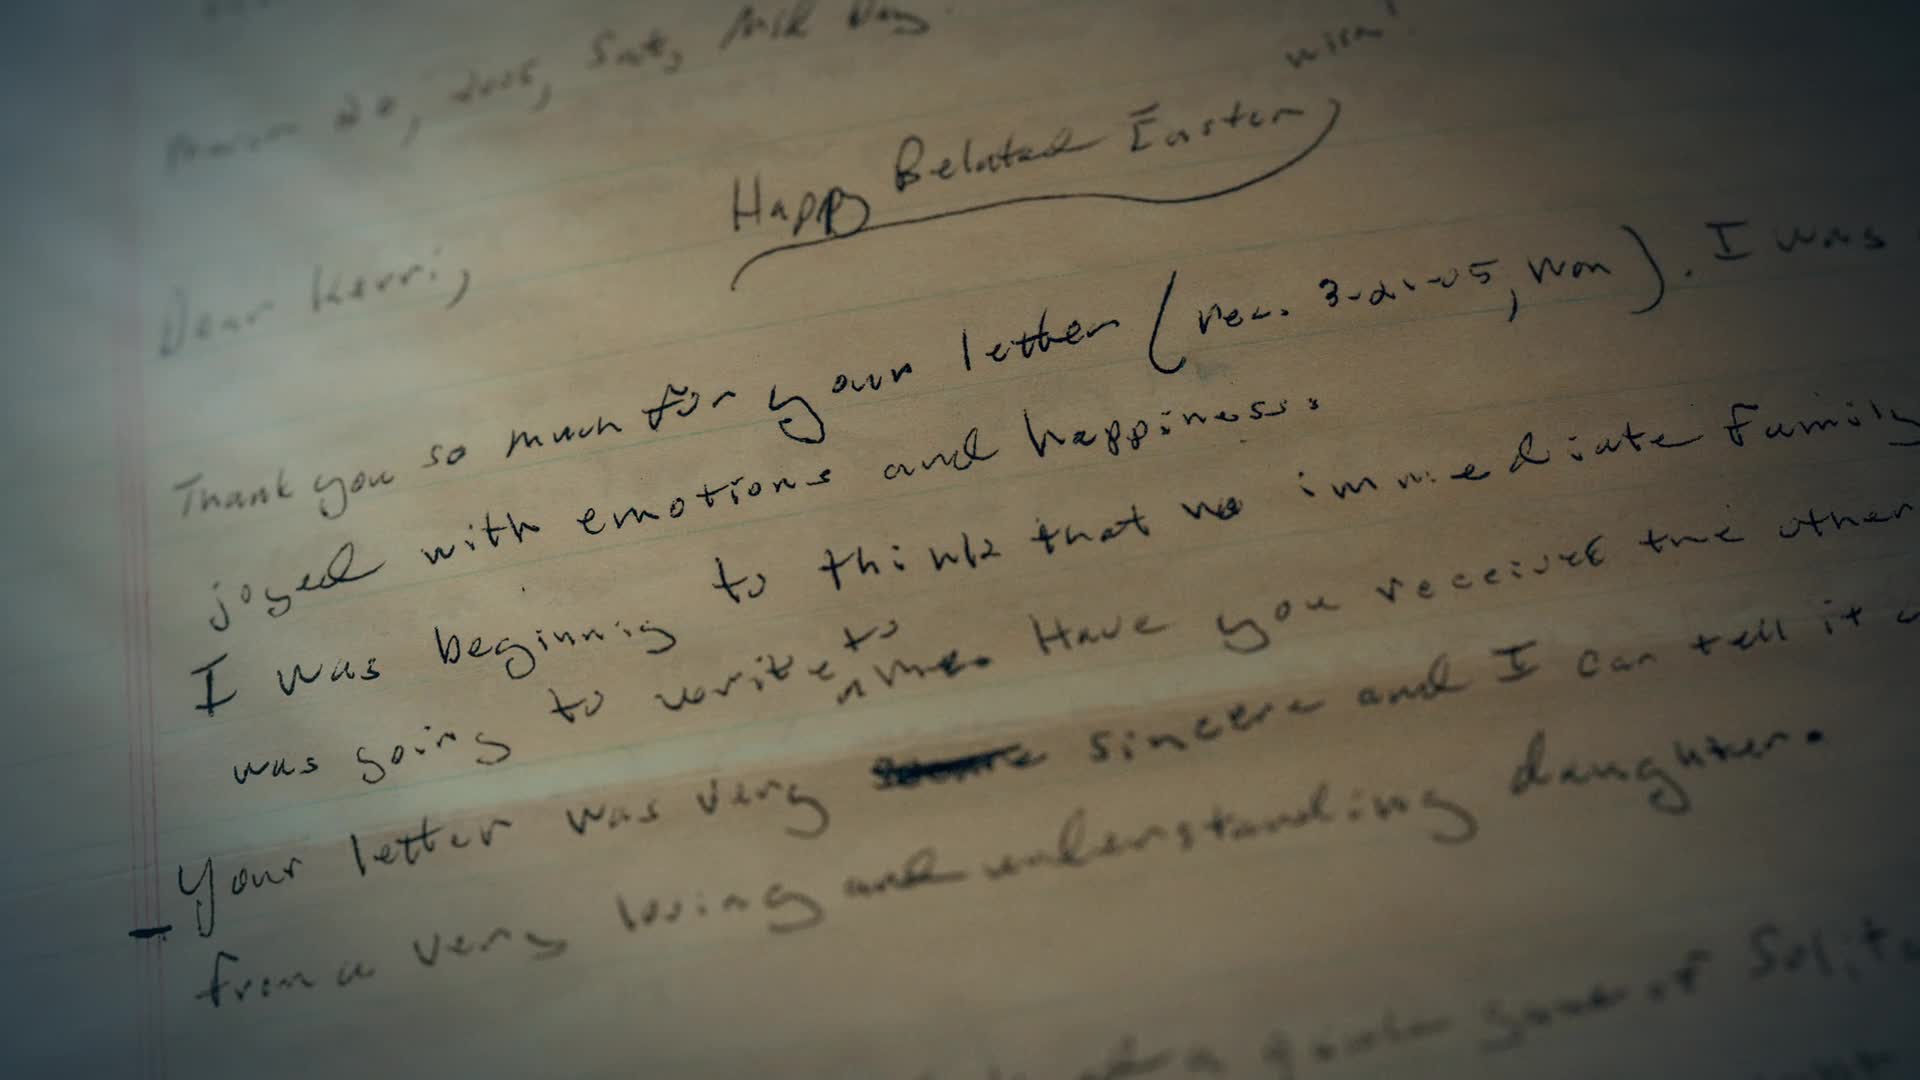 2005, Sat, Mid Day
Happy Belated Easter,
Dear Kerri,
Thank you so much for your letter (rec. 3-21-05, Mon). I was
joyed with emotions and happiness.
I was beginnig to think that no immediate family
was going to write to me. Have you received the other
Your letter was very sincere and I can tell it
from a very loving and understanding daughter.